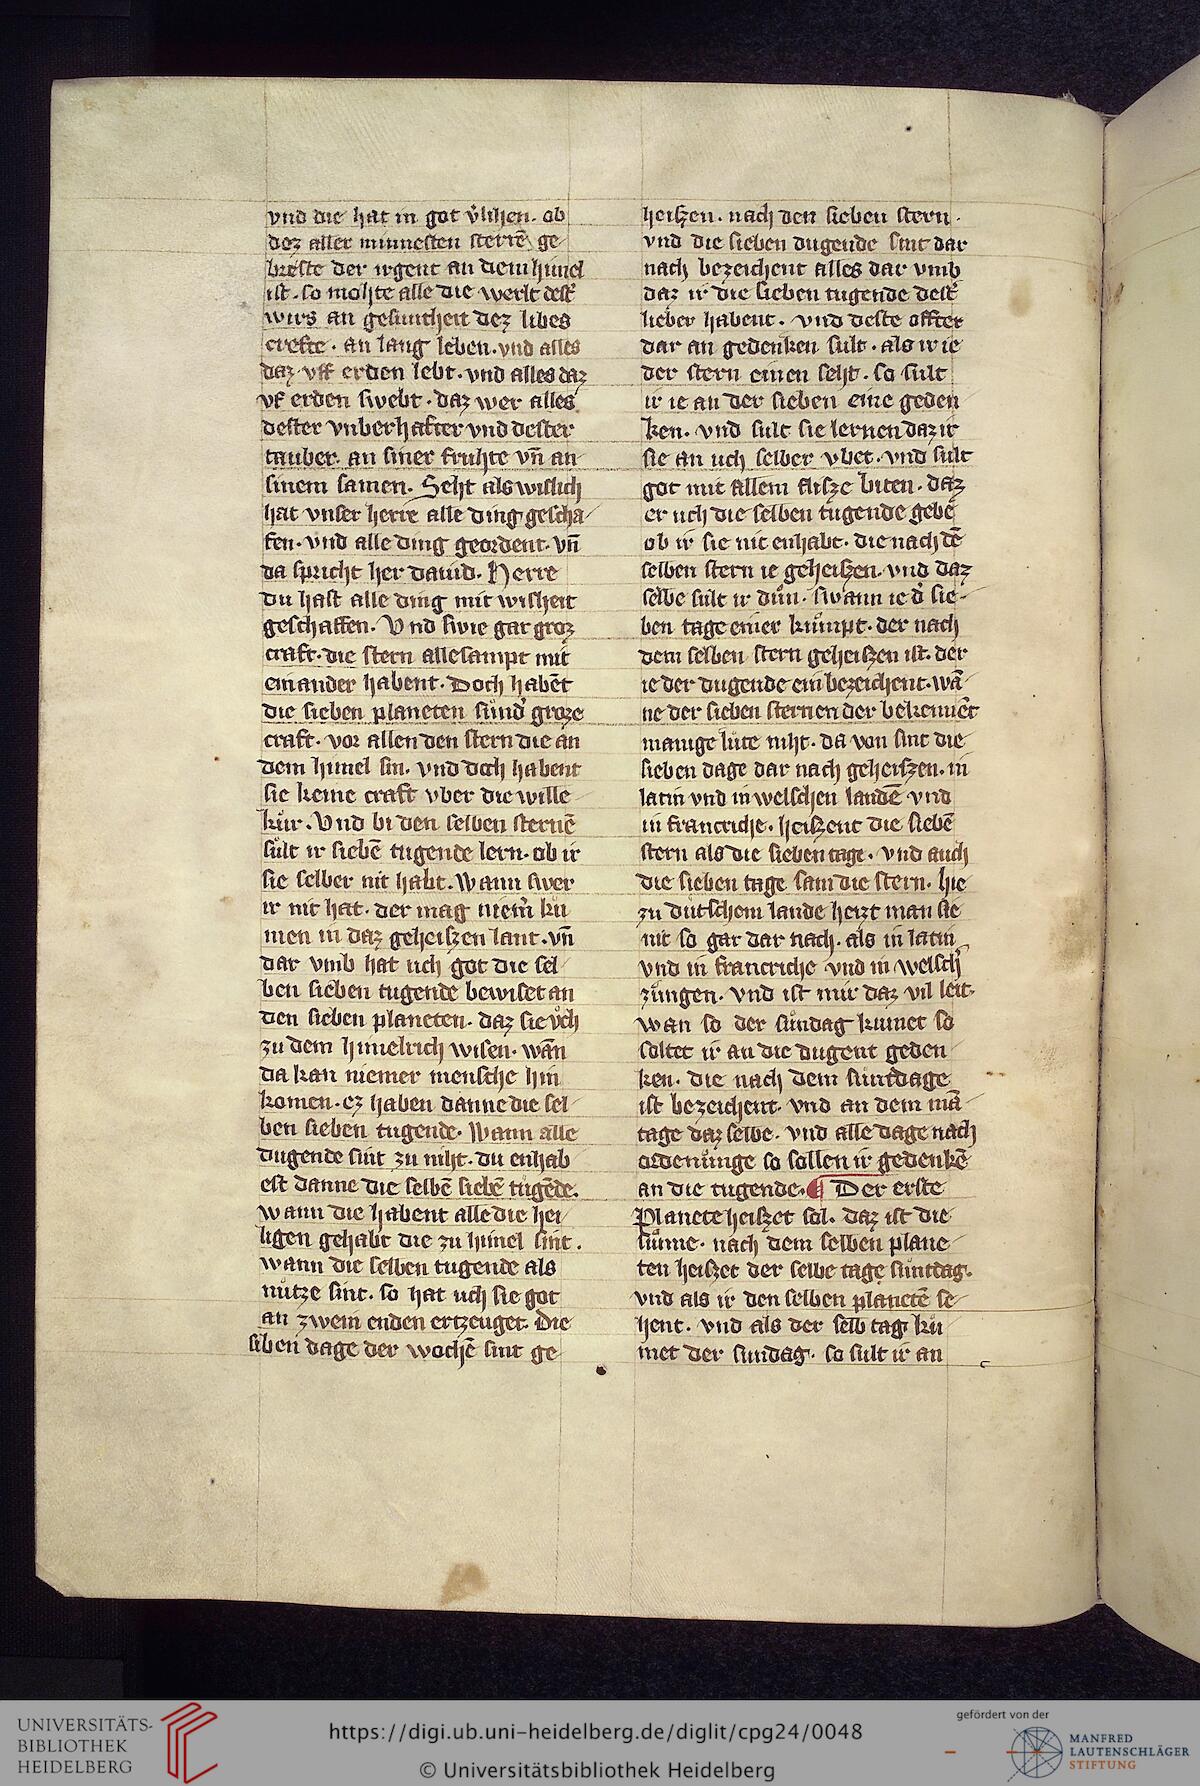 vnd die hat in got v̓lihen. ob
dez aller minnesten sterrē ge
breste der irgent an dem himel
ist. so mohte alle die werlt dest̓
wirs an gesuntheit dez libes
crefte. an lang leben. vnd alles
daz vff erden lebt. vnd alles daz
vf erden swebt. daz wer alles
dester vnberhafter vnd dester
tauber. an siner fruhte vn̄ an
sinem samen. Seht als wislich
hat vnser herre alle ding gescha
fen. vnd alle ding geordent. vn̄
da spricht her dauid. Herre
du hast alle ding mit wisheit
geschaffen. Vnd swie gar groz
craft. die stern alle sampt mit
einander habent. Doch habēt
die sieben planeten sůnd̓ groze
craft. vor allen den stern die an
dem himel sin. vnd doch habent
sie keine craft vber die wille
kůr. Vnd bi den selben sternē
sůlt ir siebē tugende lern. ob ir
sie selber nit habt. Wann swer
ir nit hat. der mag niem̓ ků
men in daz geheiszen lant. vn̄
dar vmb hat uch got die sel
ben sieben tugende bewiset an
den sieben planeten. daz sie vͦch
zu dem himelrich wisen. wān
da kan niemer mensche hin
komen. ez haben danne die sel
ben sieben tugende. Wann alle
dugende sint zu niht. du enhab
est danne die selbē siebē tugēde.
wann die habent alle die hei
ligen gehabt die zu himel sint.
wann die selben tugende als
nůtze sint. so hat uch sie got
an zwein enden ertzeuget. Die
siben dage der wochē sint ge
heiszen. nach den sieben stern.
vnd die sieben dugende sint dar
nach bezeichent alles dar vmb
daz ir die sieben tugende dest̓
lieber habent. vnd deste offter
dar an gedenken sult. als ir ie
der stern einen seht. so sult
ir ie an der sieben eine geden
ken. vnd sult sie lernen daz ir
sie an uch selber vbet. vnd sult
got mit allem flisze biten. daz
er uch die selben tugende gebē
ob ir sie nit enhabt. die nach dē
selben stern ie geheiszen. vnd daz
selbe sult ir důn. swann ie d̓ sie
ben tage einer kůmpt. der nach
dem selben stern geheiszen ist. der
ie der dugende ein bezeichent. wā
ne der sieben sternen der bekennēt
manige lůte niht. da von sint die
sieben dage dar nach geheiszen. in
latin vnd in welschen landē vnd
in francriche. heiszent die siebē
stern als die sieben tage. vnd auch
die sieben tage sam die stern. hie
zu důtschem lande heizt man sie
nit so gar dar nach. als in latin
vnd in francriche vnd in welsch̓
zůngen. vnd ist mir daz vil leit.
wan so der sůndag kumet so
soltet ir an die dugent geden
ken. die nach dem sůntdage
ist bezeichent. vnd an dem mā
tage daz selbe. vnd alle dage nach
ordenůnge so sollen ir gedenkē
an die tugende. ¶ Der erste
Planete heiszet sol. daz ist die
sůnne. nach dem selben plane
ten heiszet der selbe tage sůntdag.
vnd als ir den selben planetē se
hent. vnd als der selb tag ků
met der sundag. so sult ir an
UNIVERSITÄTS-
BIBLIOTHEK
HEIDELBERG
https://digi.ub.uni-heidelberg.de/diglit/cpg24/0048
© Universitätsbibliothek Heidelberg
gefördert von der
MANFRED
LAUTENSCHLÄGER
STIFTUNG